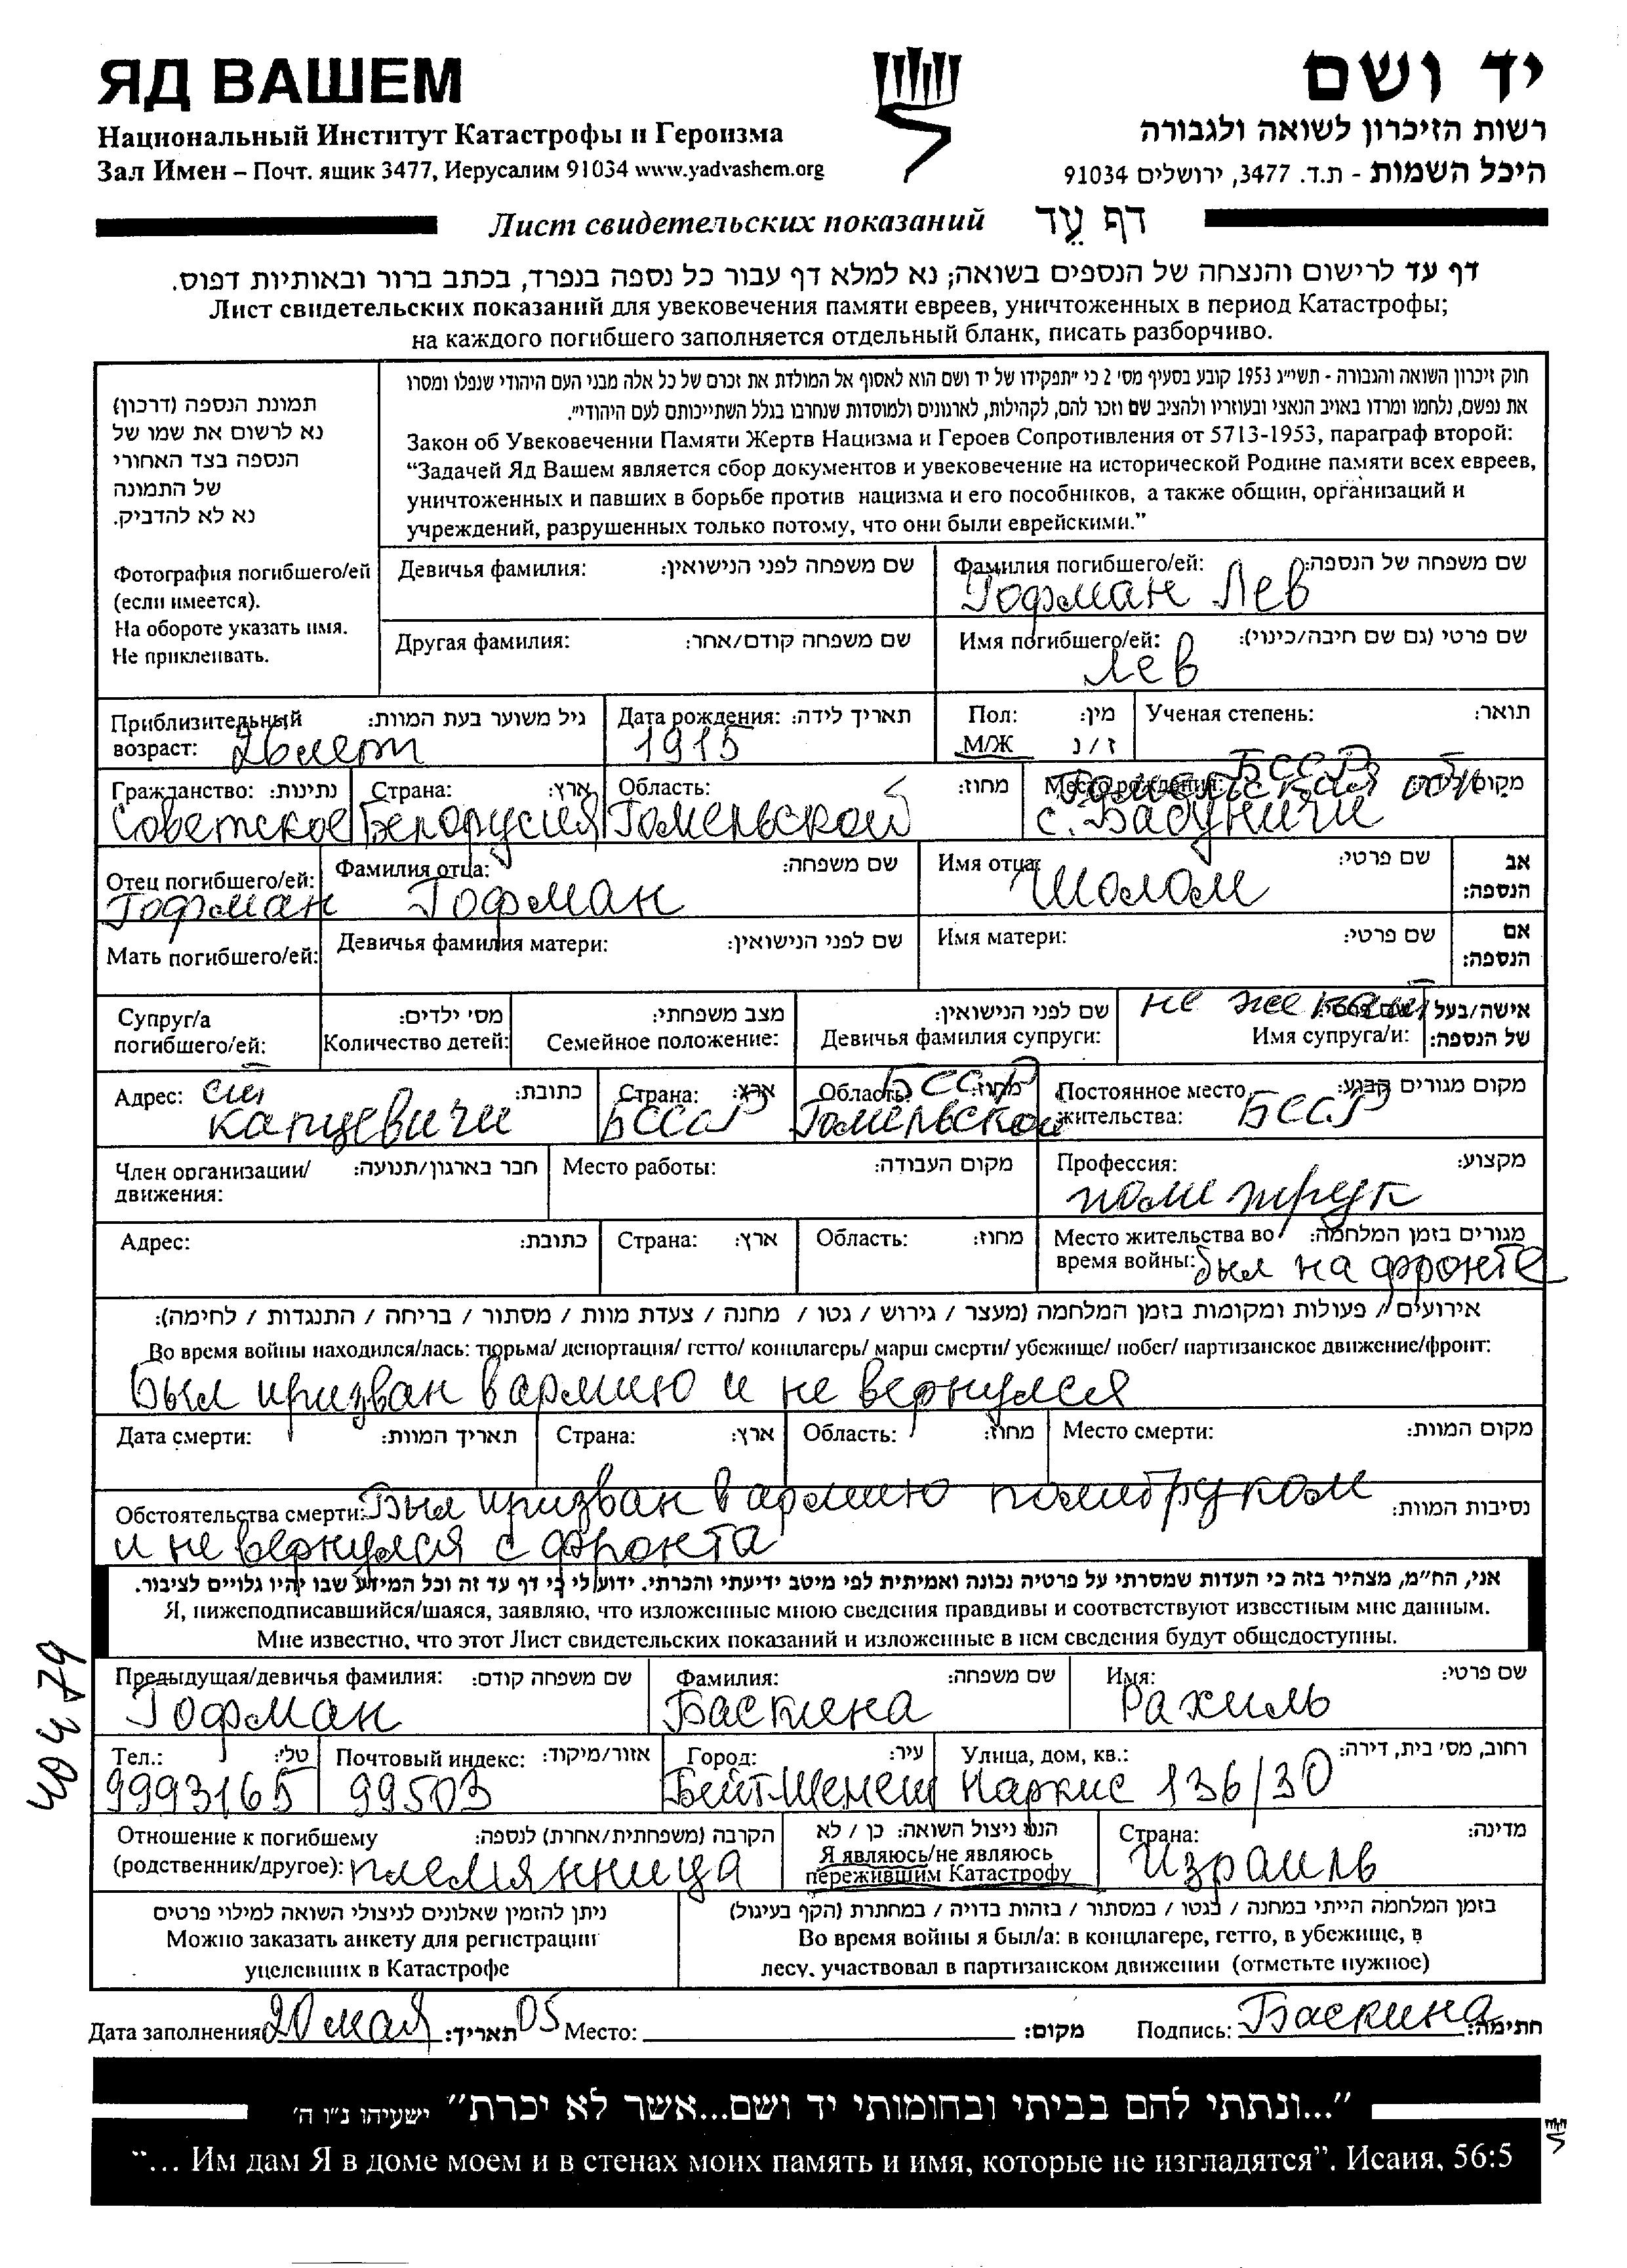 ЯД ВАШЕМ
יד ושם
Национальный Институт Катастрофы и Героизма
רשות הזיכרון לשואה ולגבורה
Зал Имен – Почт. ящик 3477, Иерусалим 91034 www.yadvashem.org
היכל השמות - ת.ד. 3477, ירושלים 91034
Лист свидетельских показаний דף עֵד
דף עד לרישום והנצחה של הנספים בשואה; נא למלא דף עבור כל נספה בנפרד, בכתב ברור ובאותיות דפוס.
Лист свидетельских показаний для увековечения памяти евреев, уничтоженных в период Катастрофы;
на каждого погибшего заполняется отдельный бланк, писать разборчиво.
תמונת הנספה (דרכון)
נא לרשום את שמו של
הנספה בצד האחורי
של התמונה
נא לא להדביק.
Фотография погибшего/ей
(если имеется).
На обороте указать имя.
Не приклеивать.
חוק זיכרון השואה והגבורה - תשי״ג 1953 קובע בסעיף מס׳ 2 כי ״תפקידו של יד ושם הוא לאסוף אל המולדת את זכרם של כל אלה מבני העם היהודי שנפלו ומסרו
את נפשם, נלחמו ומרדו באויב הנאצי ובעוזריו ולהציב שם וזכר להם, לקהילות, לארגונים ולמוסדות שנחרבו בגלל השתייכותם לעם היהודי״.
Закон об Увековечении Памяти Жертв Нацизма и Героев Сопротивления от 5713-1953, параграф второй:
“Задачей Яд Вашем является сбор документов и увековечение на исторической Родине памяти всех евреев,
уничтоженных и павших в борьбе против нацизма и его пособников, а также общин, организаций и
учреждений, разрушенных только потому, что они были еврейскими.”
Девичья фамилия: שם משפחה לפני הנישואין:
Фамилия погибшего/ей: שם משפחה של הנספה:
Гофман Лев
Другая фамилия: שם משפחה קודם/אחר:
Имя погибшего/ей: שם פרטי (גם שם חיבה/כינוי):
Лев
Приблизительный возраст: גיל משוער בעת המוות:
26 лет
Дата рождения: תאריך לידה:
1915
Пол: מין:
М/Ж ז / נ
Ученая степень: תואר:
Гражданство: נתינות:
Советское
Страна: ארץ:
Белорусия
Область: מחוז:
Гомельской
Место рождения: מקום לידה:
БССР
Гомельская обл.
с. Бабуничи
Отец погибшего/ей:
Гофман
Фамилия отца: שם משפחה:
Гофман
Имя отца: שם פרטי:
Шолом
אב הנספה:
Мать погибшего/ей:
Девичья фамилия матери: שם לפני הנישואין:
Имя матери: שם פרטי:
אם הנספה:
Супруг/а погибшего/ей:
מס׳ ילדים:
Количество детей:
מצב משפחתי:
Семейное положение:
שם לפני הנישואין:
Девичья фамилия супруги:
не женат
Имя супруга/и:
אישה/בעל של הנספה:
Адрес: כתובת:
Капцевичи
Страна: ארץ:
БССР
Область: מחוז:
БССР
Гомельской
Постоянное место жительства: מקום מגורים קבוע:
БССР
Член организации/ движения: חבר בארגון/תנועה:
Место работы: מקום העבודה:
Профессия: מקצוע:
политрук
Адрес: כתובת:
Страна: ארץ:
Область: מחוז:
Место жительства во время войны: מגורים בזמן המלחמה:
был на фронте
אירועים / פעולות ומקומות בזמן המלחמה (מעצר / גירוש / גטו / מחנה / צעדת מוות / מסתור / בריחה / התנגדות / לחימה):
Во время войны находился/лась: тюрьма/ депортация/ гетто/ концлагерь/ марш смерти/ убежище/ побег/ партизанское движение/фронт:
Был призван в армию и не вернулся
Дата смерти: תאריך המוות:
Страна: ארץ:
Область: מחוז:
Место смерти: מקום המוות:
Обстоятельства смерти: Был призван в армию политруком נסיבות המוות:
и не вернулся с фронта
אני, הח״מ, מצהיר בזה כי העדות שמסרתי על פרטיה נכונה ואמיתית לפי מיטב ידיעתי והכרתי. ידוע לי כי דף עד זה וכל המידע שבו יהיו גלויים לציבור.
Я, нижеподписавшийся/шаяся, заявляю, что изложенные мною сведения правдивы и соответствуют известным мне данным.
Мне известно, что этот Лист свидетельских показаний и изложенные в нем сведения будут общедоступны.
40479
Предыдущая/девичья фамилия: שם משפחה קודם:
Гофман
Фамилия: שם משפחה:
Баскина
Имя: שם פרטי:
Рахиль
Тел.: טל׳:
9993165
Почтовый индекс: אזור/מיקוד:
99503
Город: עיר:
Бейт Шемеш
Улица, дом, кв.: רחוב, מס׳ בית, דירה:
Наркис 136/30
Отношение к погибшему הקרבה (משפחתית/אחרת) לנספה:
(родственник/другое): племянница
הנני ניצול השואה: כן / לא
Я являюсь/не являюсь
пережившим Катастрофу
Страна: מדינה:
Израиль
ניתן להזמין שאלונים לניצולי השואה למילוי פרטים
Можно заказать анкету для регистрации
уцелевших в Катастрофе
בזמן המלחמה הייתי במחנה / בגטו / במסתור / בזהות בדויה / במחתרת (הקף בעיגול)
Во время войны я был/а: в концлагере, гетто, в убежище, в
лесу, участвовал в партизанском движении (отметьте нужное)
Дата заполнения: 20 мая 05 תאריך: Место: מקום: Подпись: Баскина חתימה:
”...ונתתי להם בביתי ובחומותי יד ושם...אשר לא יכרת” ישעיהו נ״ו ה׳
“... Им дам Я в доме моем и в стенах моих память и имя, которые не изгладятся”. Исаия, 56:5